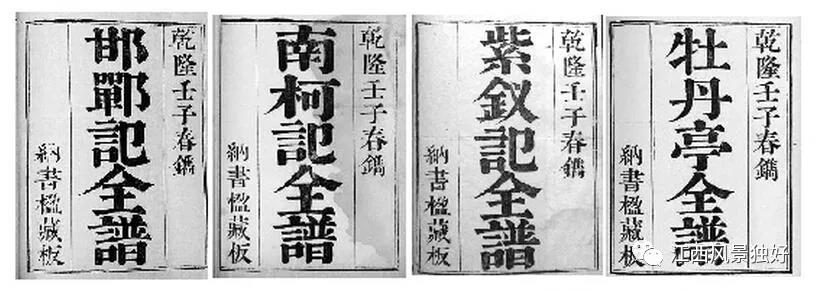 乾隆壬子春鐫
牡丹亭全譜
納書楹藏板
乾隆壬子春鐫
紫釵記全譜
納書楹藏板
乾隆壬子春鐫
南柯記全譜
納書楹藏板
乾隆壬子春鐫
邯鄲記全譜
納書楹藏板
江西风景独好